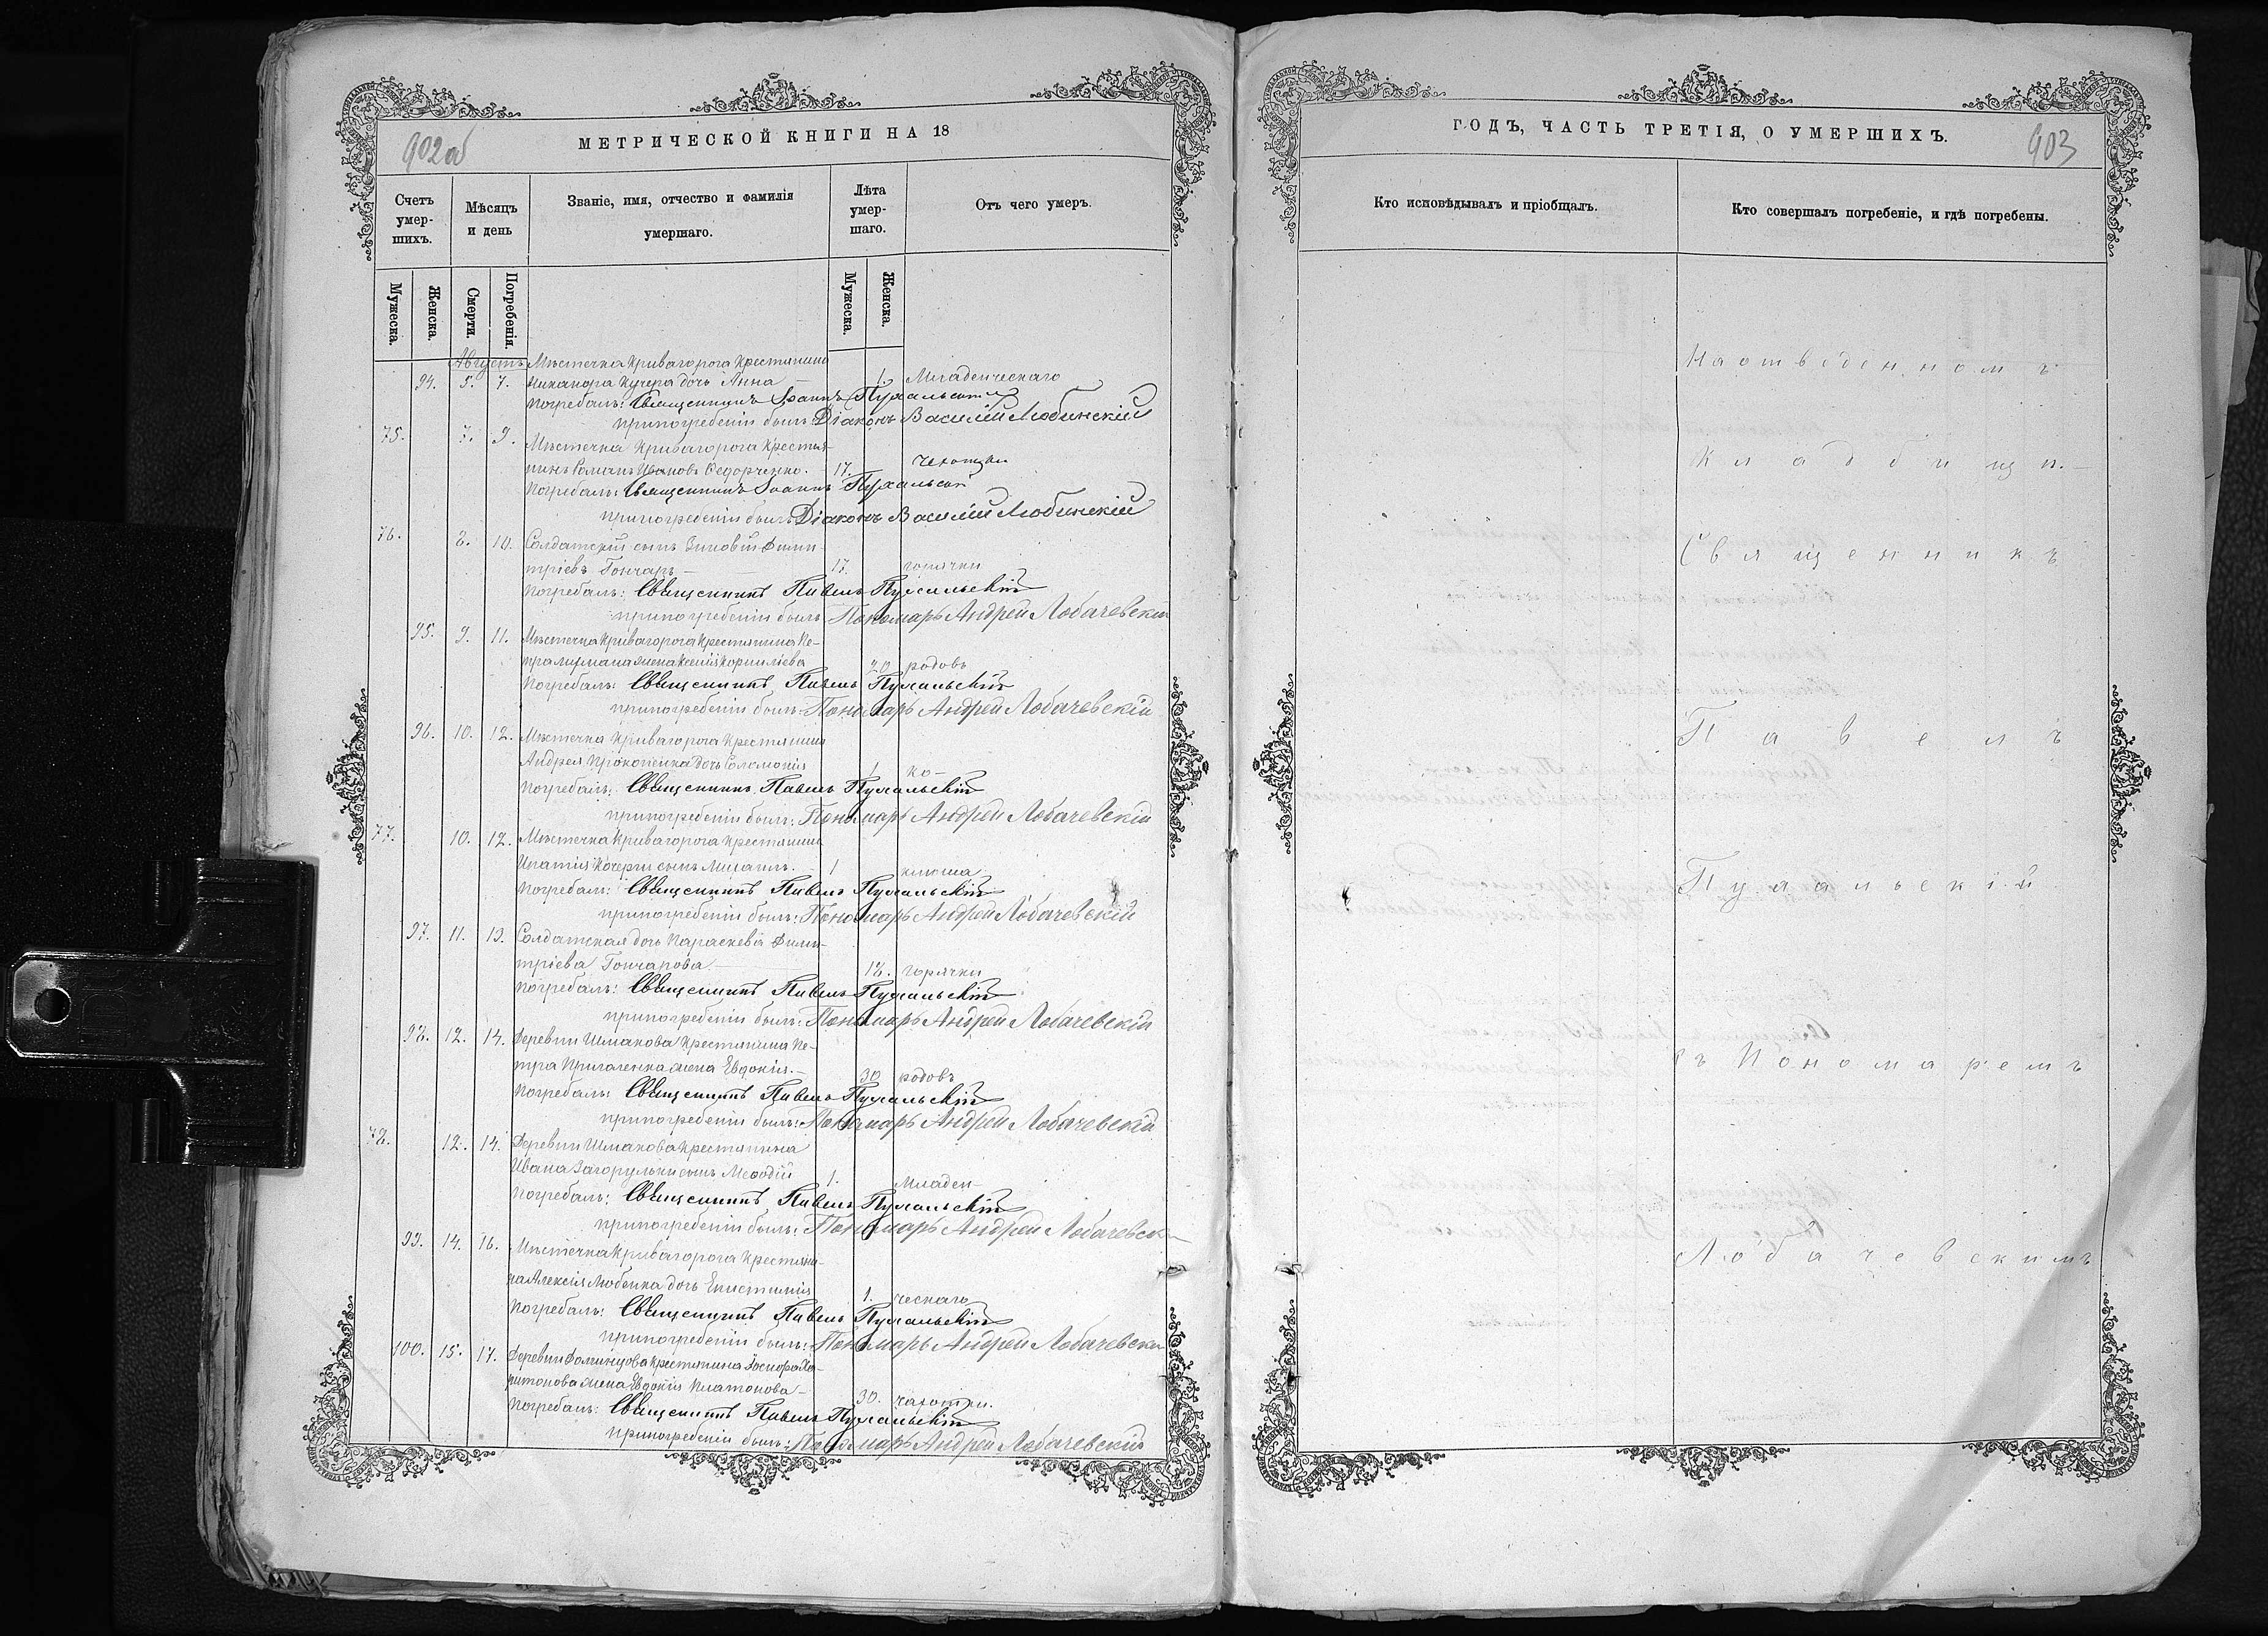 902об
МЕТРИЧЕСКОЙ КНИГИ НА 18
Счетъ умер-шихъ.
Мѣсяцъ и день
Званіе, имя, отчество и фамилія умершаго.
Лѣта умер-шаго.
Отъ чего умеръ.
Мужеска.
Женска.
Смерти.
Погребенія.
Мужеска.
Женска.
Августъ Мѣстечка Кривагорога Крестянина
94. 5. 7. Никанора Кучера дочь Анна 1. Младенческаго
Погребалъ: Священникъ Іоаннъ Пухальскій
припогребеніи былъ: Діаконъ Василій Любинскій
75. 7. 9.
Мѣстечка Кривагорога Крестья-
нинъ Романъ Ивановъ Федорченко. 17. Чехотки
Погребалъ: Священникъ Іоаннъ Пухальскій
припогребеніи былъ Діаконъ Василій Любинскій
76. 8. 10. Солдатскій сынъ Зиновій Дими-
тріевъ Гончаръ — 17. горячки
Погребалъ: Священникъ Павелъ Пухальскій
припогребеніи былъ Пономарь Андрей Лобачевскій
95. 9. 11. Мѣстечка Кривагорога Крестянина Пе-
тра жена Корниліева 20 родовъ
Погребалъ: Священникъ Павелъ Пухальскій
припогребеніи былъ Пономарь Андрей Лобачевскій
96. 10. 12. Мѣстечка Кривагорога Крестянина
Андрея Прокопенка дочь Соломонія 1 ко-
Погребалъ: Священникъ Павелъ Пухальскій
припогребеніи былъ: Пономарь Андрей Лобачевскій
77. 10. 12. Мѣстечка Кривагорога Крестянина
Игнатія Кочерги сынъ Михаилъ. 1 клюша
Погребалъ: Священникъ Павелъ Пухальскій
припогребеніи былъ: Пономарь Андрей Лобачевскій
97. 11. 13. Солдатская дочь Параскевія Дими-
тріева Гончарова — 18. горячки
Погребалъ: Священникъ Павелъ Пухальскій
припогребеніи былъ: Пономарь Андрей Лобачевскій
98. 12. 14. Деревни Шмакова Крестянина Пе-
тра жена Евдокія. — 30 родовъ
Погребалъ: Священникъ Павелъ Пухальскій
припогребеніи былъ: Пономарь Андрей Лобачевскій
78. 12. 14. Деревни Шмакова Крестянина
Ивана Загорульки сынъ Меѳодій 1. Младен-
Погребалъ: Священникъ Павелъ Пухальскій
припогребеніи былъ: Пономарь Андрей Лобачевск
99. 14. 16. Мѣстечка Кривагорога Крестяни-
на Алексія Любенка дочь 1. ческаго
Погребалъ: Священникъ Павелъ Пухальскій
припогребеніи былъ: Пономарь Андрей Лобачевскій
100. 15. 17. Деревни Крестянина Ха-
ритонова жена Евдокія Платонова — 30. чахотки.
Погребалъ: Священникъ Павелъ Пухальскій
припогребеніи былъ: Пономарь Андрей Лобачевскій
ГОДЪ, ЧАСТЬ ТРЕТІЯ, О УМЕРШИХЪ.
903
Кто исповѣдывалъ и пріобщалъ.
Кто совершалъ погребеніе, и гдѣ погребены.
На отведенномъ
Кладбищи. —
Священникъ
Павелъ
Пухальскій
съ Пономаремъ
Лобачевскимъ